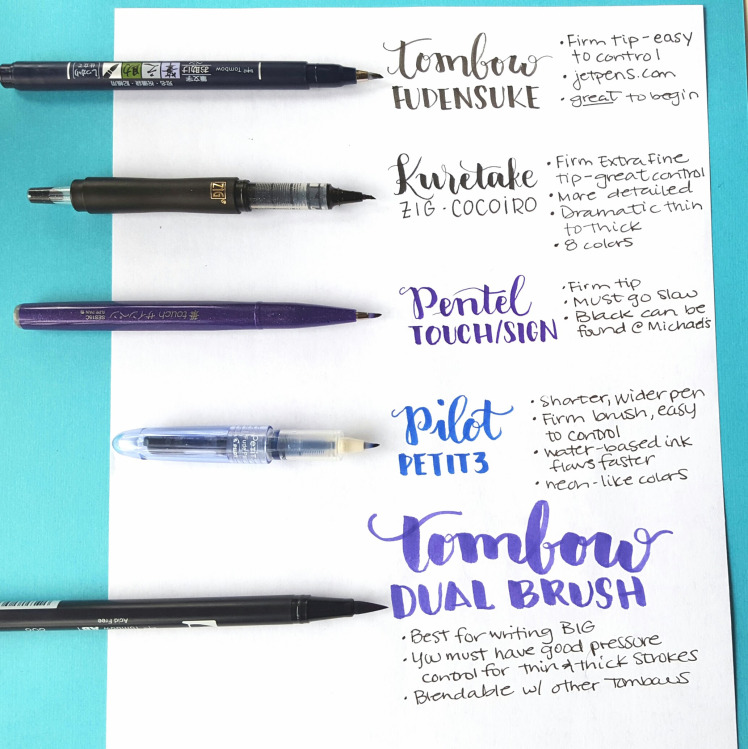 tombow
FUDENSUKE
• Firm tip-easy
to control
• jetpens.com
• great to begin
Tombow
お助け
筆之助
しっかり
Kuretake
ZIG·COCOIRO
• Firm Extra fine
tip-great control
• More detailed
• Dramatic thin
to thick
• 8 colors
ZIG
Pentel
TOUCH/SIGN
• Firm tip
• Must go slow
• Black can be
found @ Michael's
筆touch サインペン
SES15C
Pilot
PETIT3
• Shorter, wider pen
• Firm brush, easy
to control
• water-based ink
flows faster
• neon-like colors
Petit3
tombow
DUAL BRUSH
• Best for writing BIG
• You must have good pressure
control for thin & thick strokes
• Blendable w/ other Tombows
Acid Free